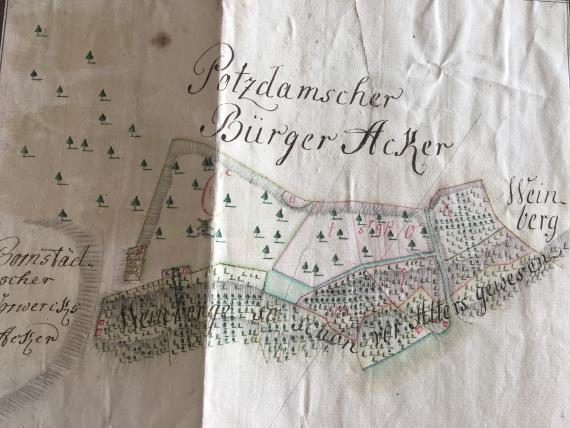 Potzdamscher
Bürger Acker
Wein-
berg
Bornstäd-
scher
Vorwercks
Acker
Weinberge so schon vor Alters gewesen